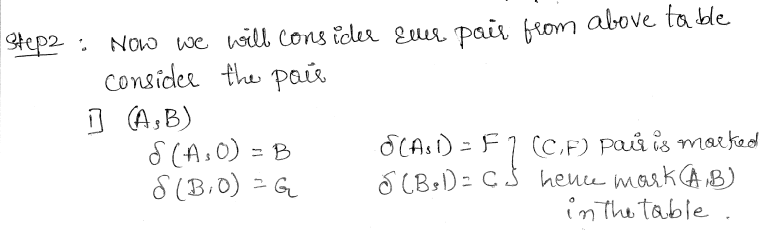 Step2 : Now we will consider ever pair from above table
consider the pair
i] (A,B)
δ(A,0) = B δ(A,1) = F } (C,F) pair is marked
δ(B,0) = G δ(B,1) = C hence mark (A,B)
in the table .